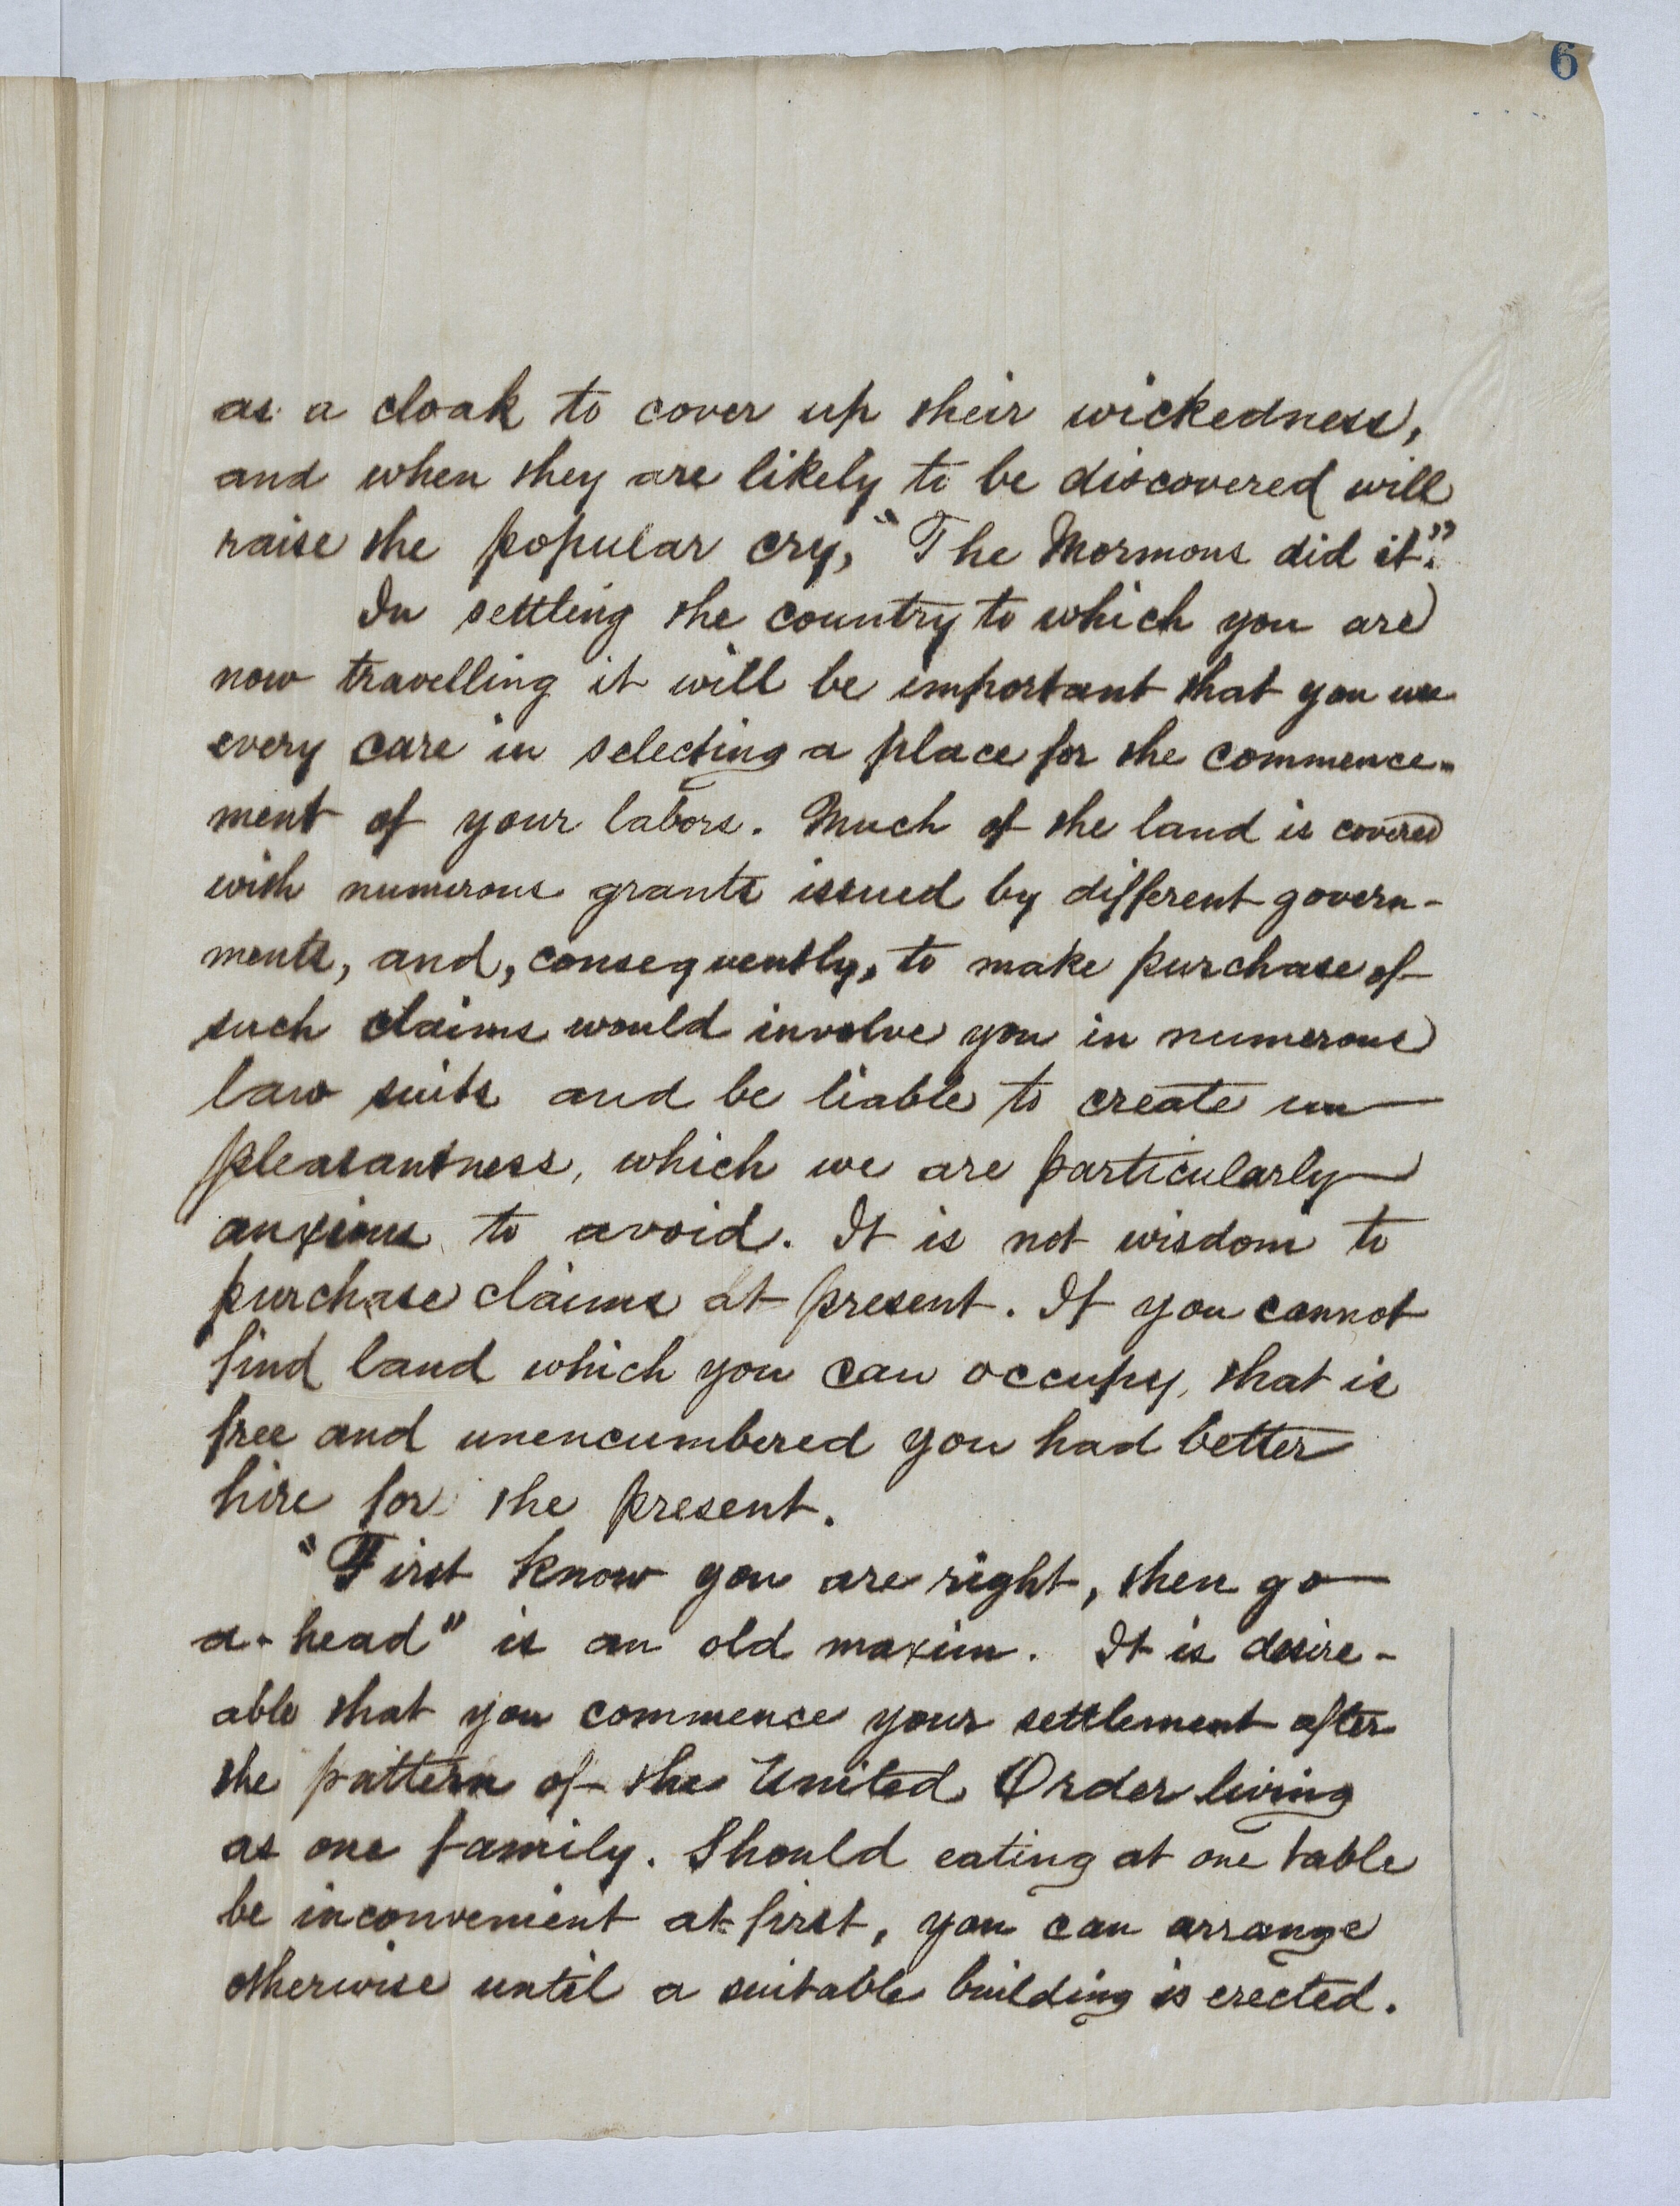 6
as a cloak to cover up their wickedness,
and when they are likely to be discovered will
raise the popular cry, "The Mormons did it."
In settling the country to which you are
now travelling it will be important that you use
every care in selecting a place for the commence-
ment of your labors. Much of the land is covered
with numerous grants issued by different govern-
ments, and, consequently, to make purchase of
such claims would involve you in numerous
law suits and be liable to create un
pleasantness, which we are particularly
anxious to avoid. It is not wisdom to
purchase claims at present. If you cannot
find land which you can occupy, that is
free and unencumbered you had better
hire for the present.
"First know you are right, then go
a-head" is an old maxim. It is desire-
able that you commence your settlement after
the pattern of the United Order living
as one family. Should eating at one table
be inconvenient at first, you can arrange
otherwise until a suitable building is erected.